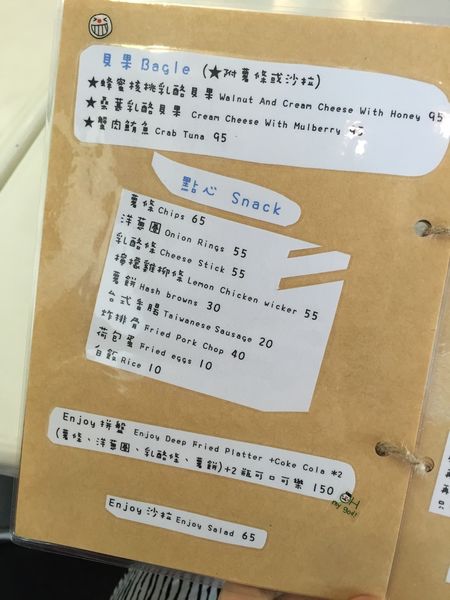 貝果 Bagle (★附薯條或沙拉)
★蜂蜜核桃乳酪貝果 Walnut And Cream Cheese With Honey 95
★桑葚乳酪貝果 Cream Cheese With Mulberry 95
★蟹肉鮪魚 Crab Tuna 95
點心 Snack
薯條 Chips 65
洋蔥圈 Onion Rings 55
乳酪條 Cheese Stick 55
檸檬雞柳條 Lemon Chicken wicker 55
薯餅 Hash browns 30
台式香腸 Taiwanese Sausage 20
炸排骨 Fried Pork Chop 40
荷包蛋 Fried eggs 10
白飯 Rice 10
Enjoy 拼盤 Enjoy Deep Fried Platter +Coke Cola *2
(薯條、洋蔥圈、乳酪條、薯餅)+2瓶可口可樂 150
OH my god!
Enjoy 沙拉 Enjoy Salad 65